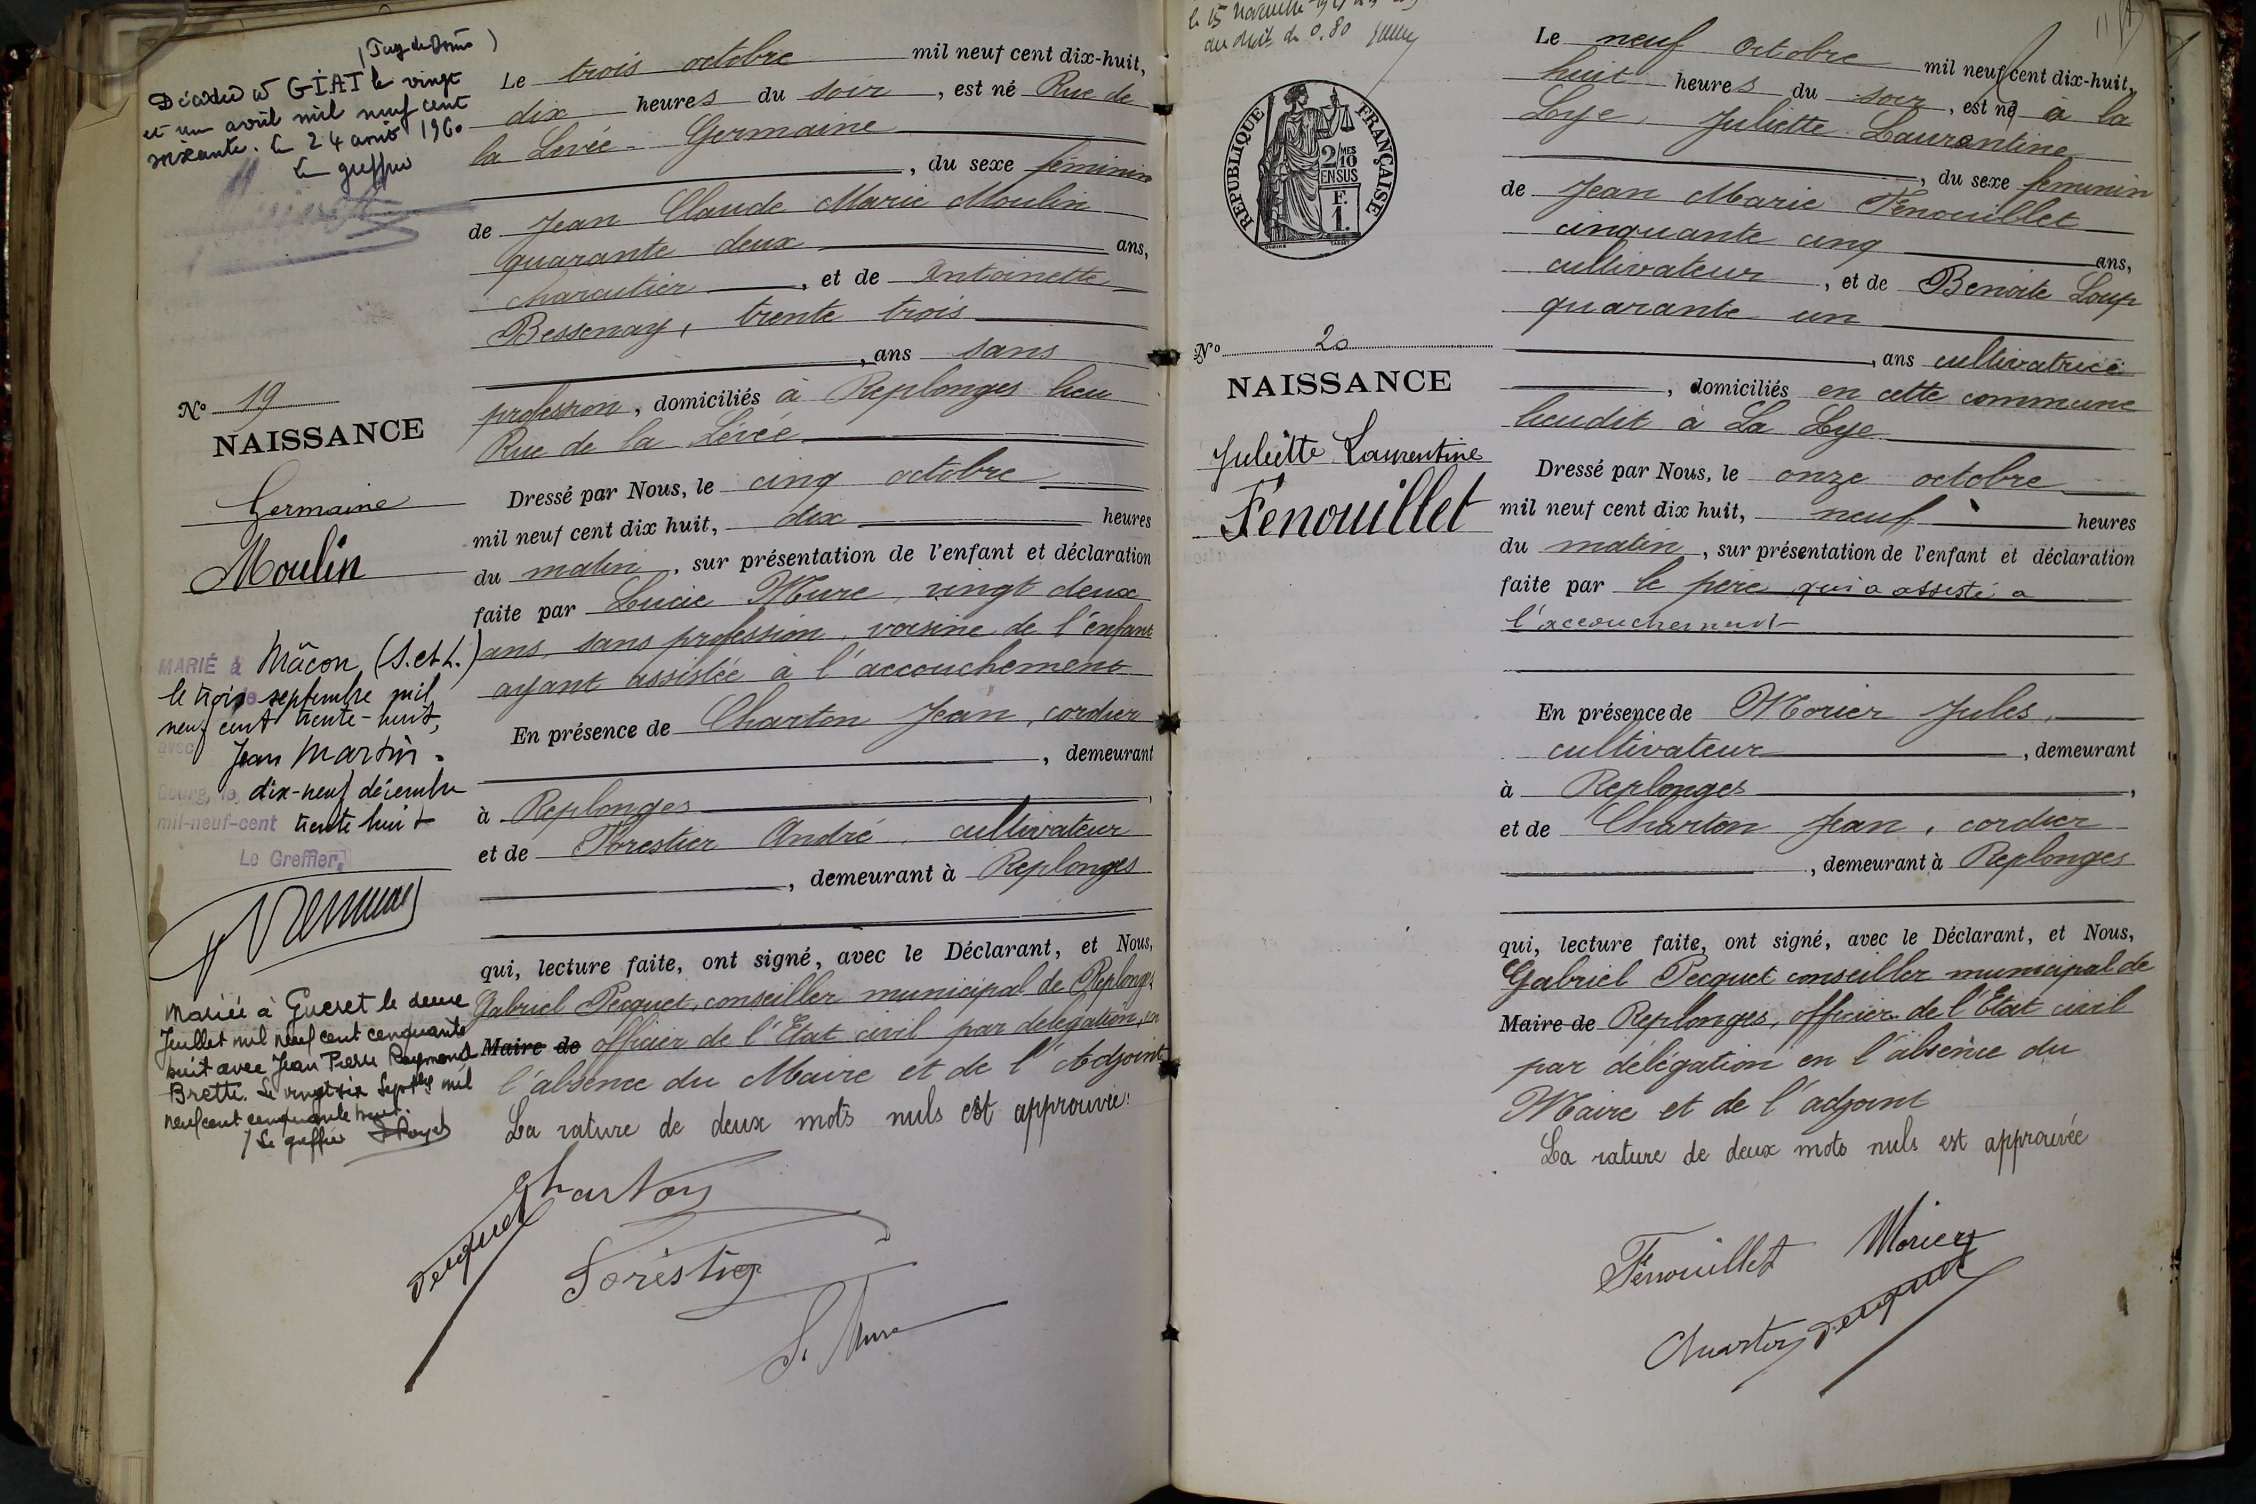 (Puy de Dôme)
Décédée à GIAT le vingt
et un avril mil neuf cent
soixante. Le 24 avril 1960
Le greffier
N° 19
NAISSANCE
Germaine
Moulin
MARIÉ à Mâcon (S. et L.)
le trois septembre mil
neuf cent trente-huit,
avec Jean Martin.
Bourg, le dix-neuf décembre
mil-neuf-cent trente huit
Le Greffier,
Mariée à Gueret le deux
Juillet mil neuf cent cinquante
huit avec Jean Pierre Raymond
Brette. Le vingt six Septbre mil
neuf cent cinquante huit.
Le greffier
Le trois octobre mil neuf cent dix-huit,
dix heures du soir, est né Rue de
la Levée - Germaine
, du sexe féminin
de Jean Claude Marie Moulin
quarante deux ans,
charcutier, et de Antoinette
Bessenay, trente trois
, ans sans
profession, domiciliés à Replonges lieu
Rue de la Lévée
Dressé par Nous, le cinq octobre
mil neuf cent dix huit, dix heures
du matin, sur présentation de l'enfant et déclaration
faite par Lucie Mure, vingt deux
ans, sans profession, voisine de l'enfant
ayant assistée à l'accouchement
En présence de Charton Jean, cordier
, demeurant
à Replonges,
et de Forestier André, cultivateur
, demeurant à Replonges
qui, lecture faite, ont signé, avec le Déclarant, et Nous,
Gabriel Pecquet, conseiller municipal de Replonges
Maire de officier de l'Etat civil par délégation, en
l'absence du Maire et de l'Adjoint
La rature de deux mots nuls est approuvée.
Charton
Pecquet
Forestier
L. Mure
le 15 Novembre
du droit de 0.80
RÉPUBLIQUE FRANÇAISE
2/10 MES
EN SUS
F.
1.
N° 20
NAISSANCE
Juliette Laurentine
Fenouillet
Le neuf octobre mil neuf cent dix-huit,
huit heures du soir, est né à la
Lye, Juliette Laurentine
, du sexe féminin
de Jean Marie Fenouillet
cinquante cinq ans,
cultivateur, et de Benoite Loup
quarante un
, ans cultivatrice
, domiciliés en cette commune
lieudit à La Lye
Dressé par Nous, le onze octobre
mil neuf cent dix huit, neuf heures
du matin, sur présentation de l'enfant et déclaration
faite par le père qui a assisté a
l'accouchement
En présence de Morier Jules,
cultivateur, demeurant
à Replonges,
et de Charton Jean, cordier
, demeurant à Replonges
qui, lecture faite, ont signé, avec le Déclarant, et Nous,
Gabriel Pecquet conseiller municipal de
Maire de Replonges, officier de l'Etat civil
par délégation en l'absence du
Maire et de l'adjoint
La rature de deux mots nuls est approuvée
Fenouillet Morier
Charton Pecquet